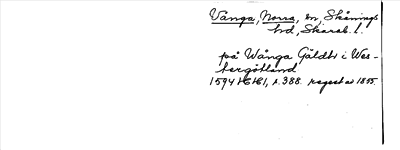 Vånga, Norra, sn, Skånings
hd, Skarab. l.
på Wånga Gäldh i Wes-
tergötland
1594 HH, s. 388. regest av 1855.